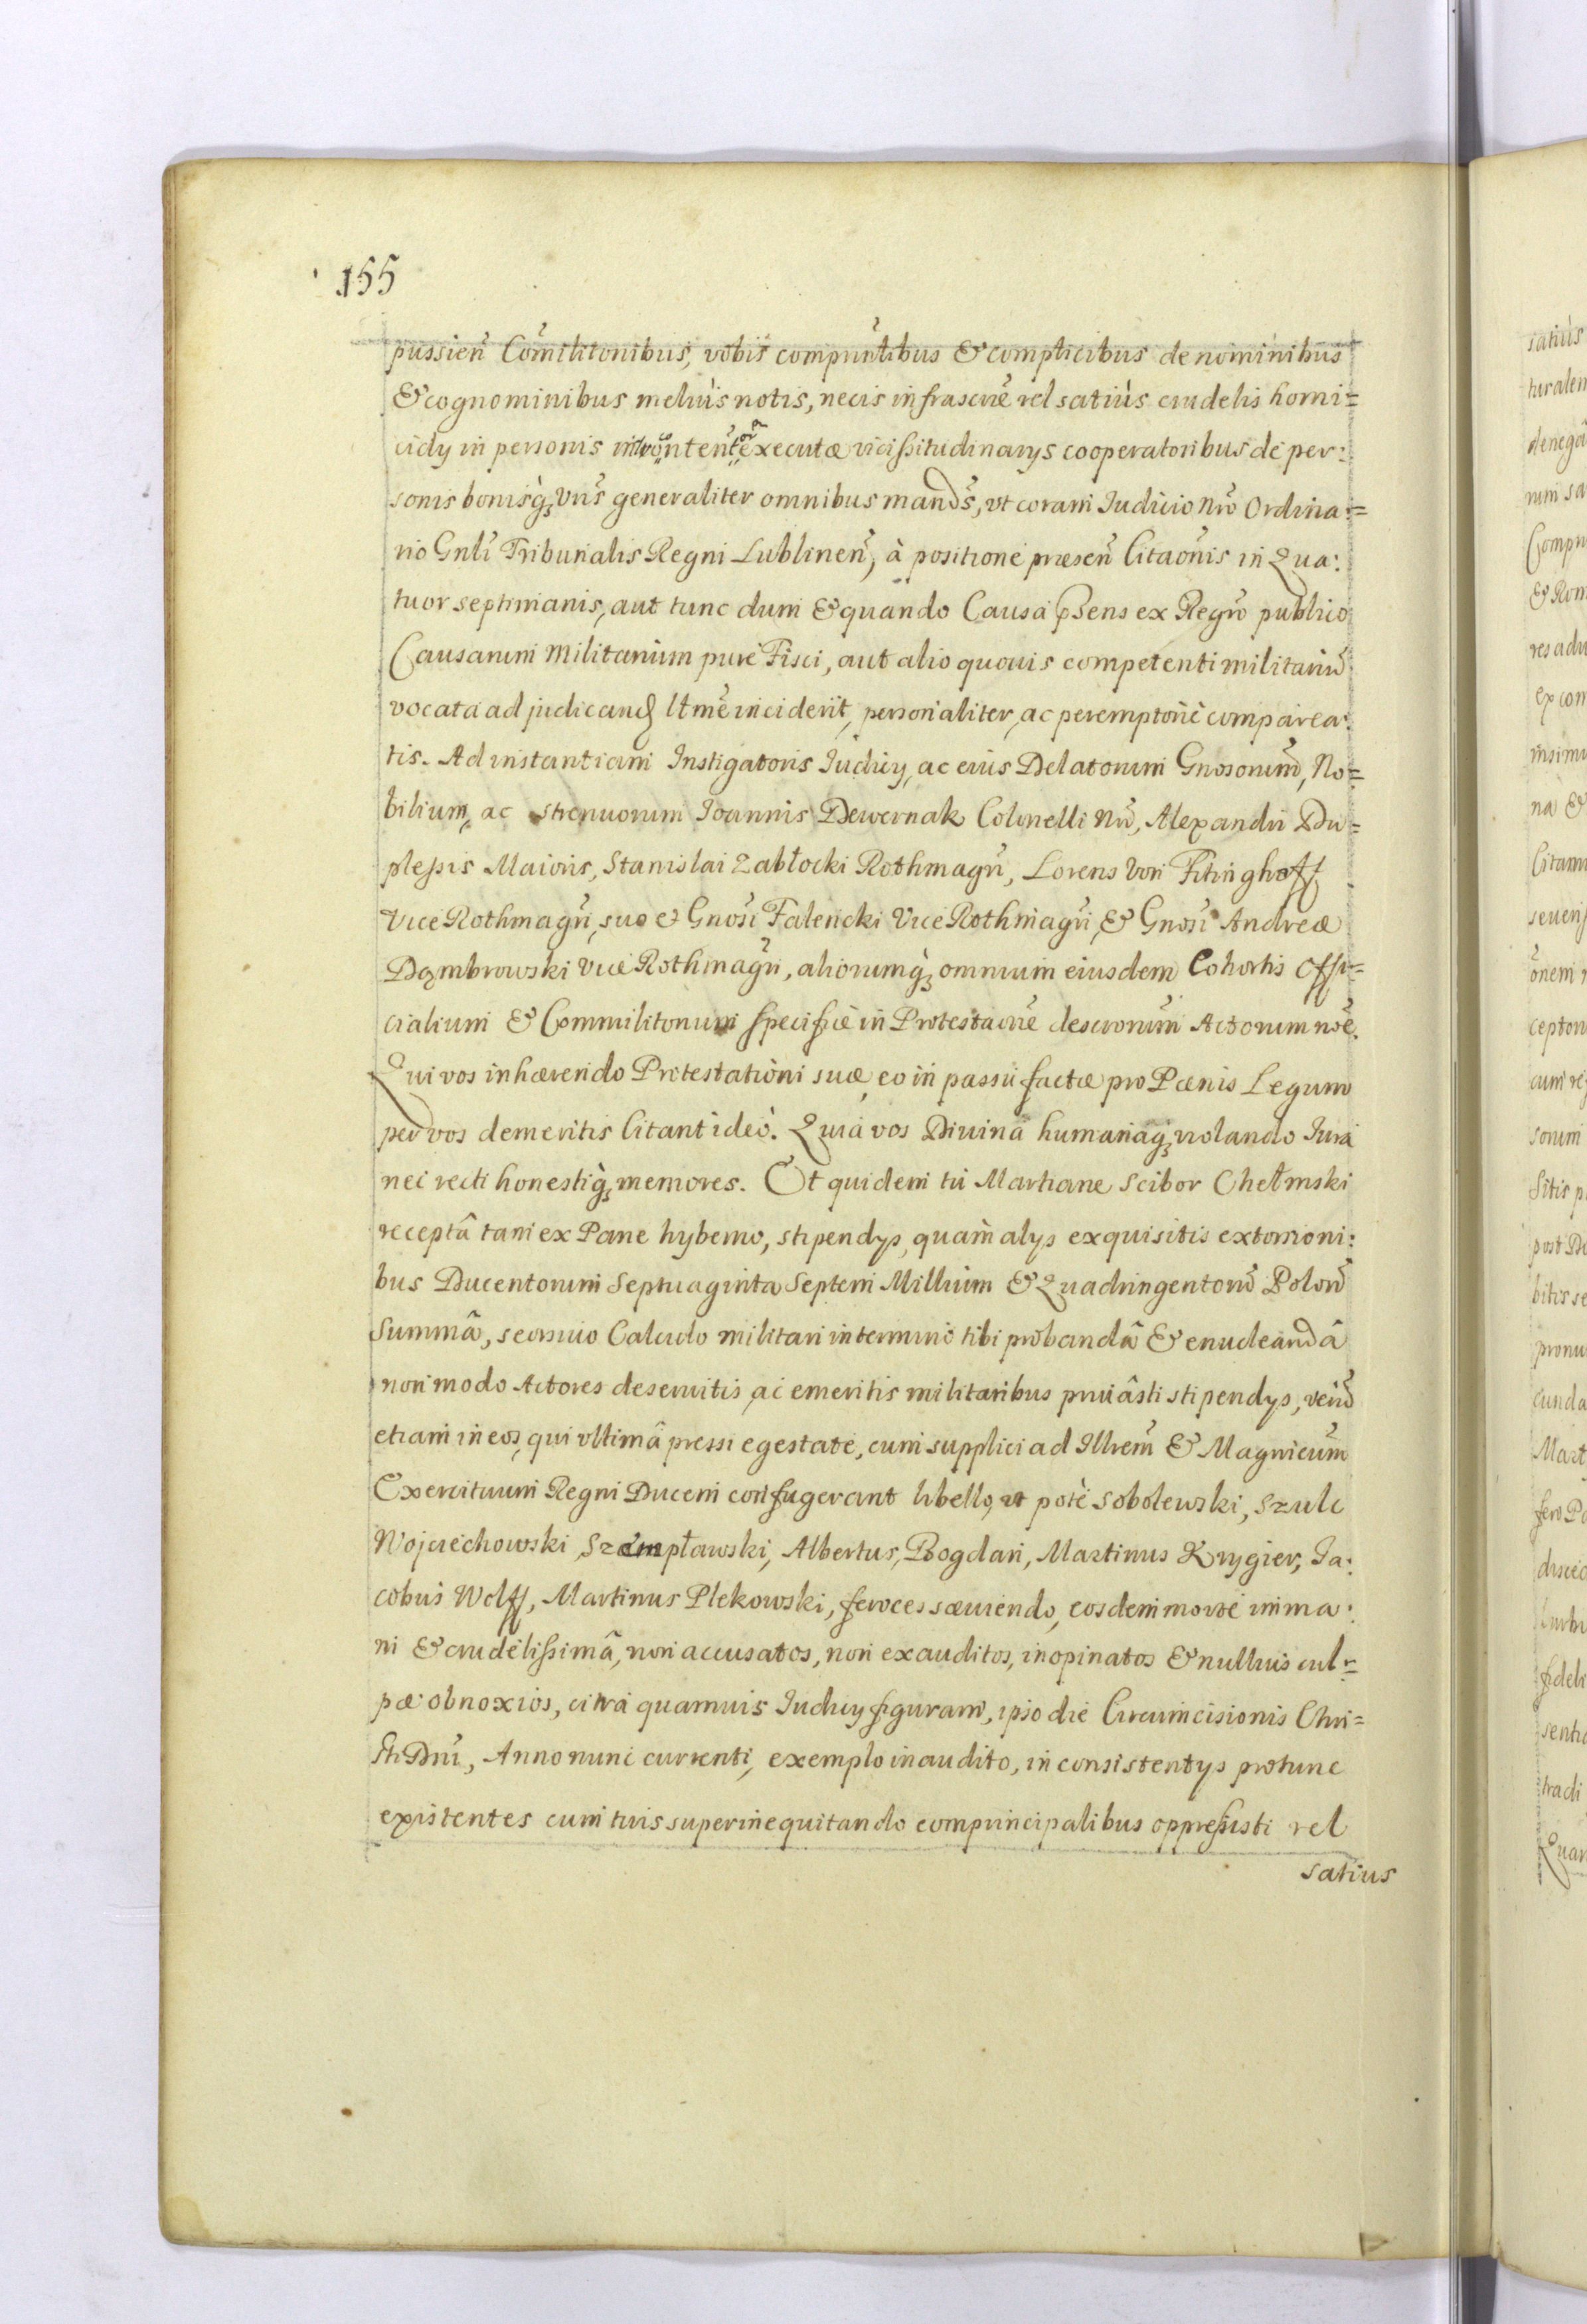 155
pussień Com̃ilitonibus, vobis compun̄libus & complicibus de nominibus
& cognominibus meliùs notis, necis infrascrīe vel satiùs crudelis homi=
cidy in personis introcontentor executæ vicissitudinarys cooperatoribus de per:
sonis bonisq̀ vrīs generaliter omnibus mandš, vt coram Iudicio nrō Ordina:=
rio Gnlī Tribunalis Regni Lublineń, à positione præseń Citaōnis in Qua:
tuor septimanis, aut tunc dum & quando Causa p̄sens ex Regrō publico
Causarum Militarium pure Fisci, aut alio quouis competenti militariū
vocata ad judicand Itm̄e inciderit, personaliter, ac peremptoriè comparea:
tis. Ad instantiam Instigatoris Iudicy, ac eius Delatorum Gnosorum̄, No=
bilium, ac strenuorum Ioannis Dewernak Colonelli Nrī, Alexandri Du=
plessis Maioris, Stanislai Zabłocki Rothmagrī, Lorens Von Fitinghoff
Vice Rothmagrī, suo et Gnosī Falencki Vice Rothmagrī, & Gnosī Andreæ
Dąmbrowski Vice Rothmagrī, aliorumq̀ omnium eiusdem Cohortis Offi=
cialium & Commilitonum specificè in Protestaōne descrorum̄ Actorum nōe.
Qui vos inhærendo Protestationi suæ, eo in passu factæ pro Pænis Legum
per vos demeritis Citant ideò. Quia vos Diuina humanaq̀ violando Iura
nec recti honestiq̀ memores. Et quidem tu Martiane Scibor Chełmski
receptâ tam ex Pane hyberno, stipendys, quam̀ alys exquisitis extorsioni:
bus Ducentorum Septuaginta Septem Millium & Quadringentorū Polorū
Summâ, seorsiuo Calculo militari in termino tibi probandâ & enucleandâ
non modo Actores deseruitis, ac emeritis militaribus priuâsti stipendys, verū
etiam in eos, qui vltimâ pressi egestate, cum supplici ad Illrem̄ & Magnicum̄
Exercituum Regni Ducem confugerant libello, ut pote Sobolewski, Szulc
Wojciechowski, Szempławski, Albertus, Bogdan, Martinus Krygier, Ia:
cobus Wolff, Martinus Plekowski, feroces sæuiendo, eosdem morte imma:
ni & crudelissimâ, non accusatos, non exauditos, inopinatos & nullius cul=
pæ obnoxios, citra quamuis Iudicy figuram, ipso die Circumcisionis Chri=
sti Dnī, Anno nunc currenti, exemplo inaudito, in consistentys protunc
existentes cum tuis superinequitando comprincipalibus oppressisti vel
satius